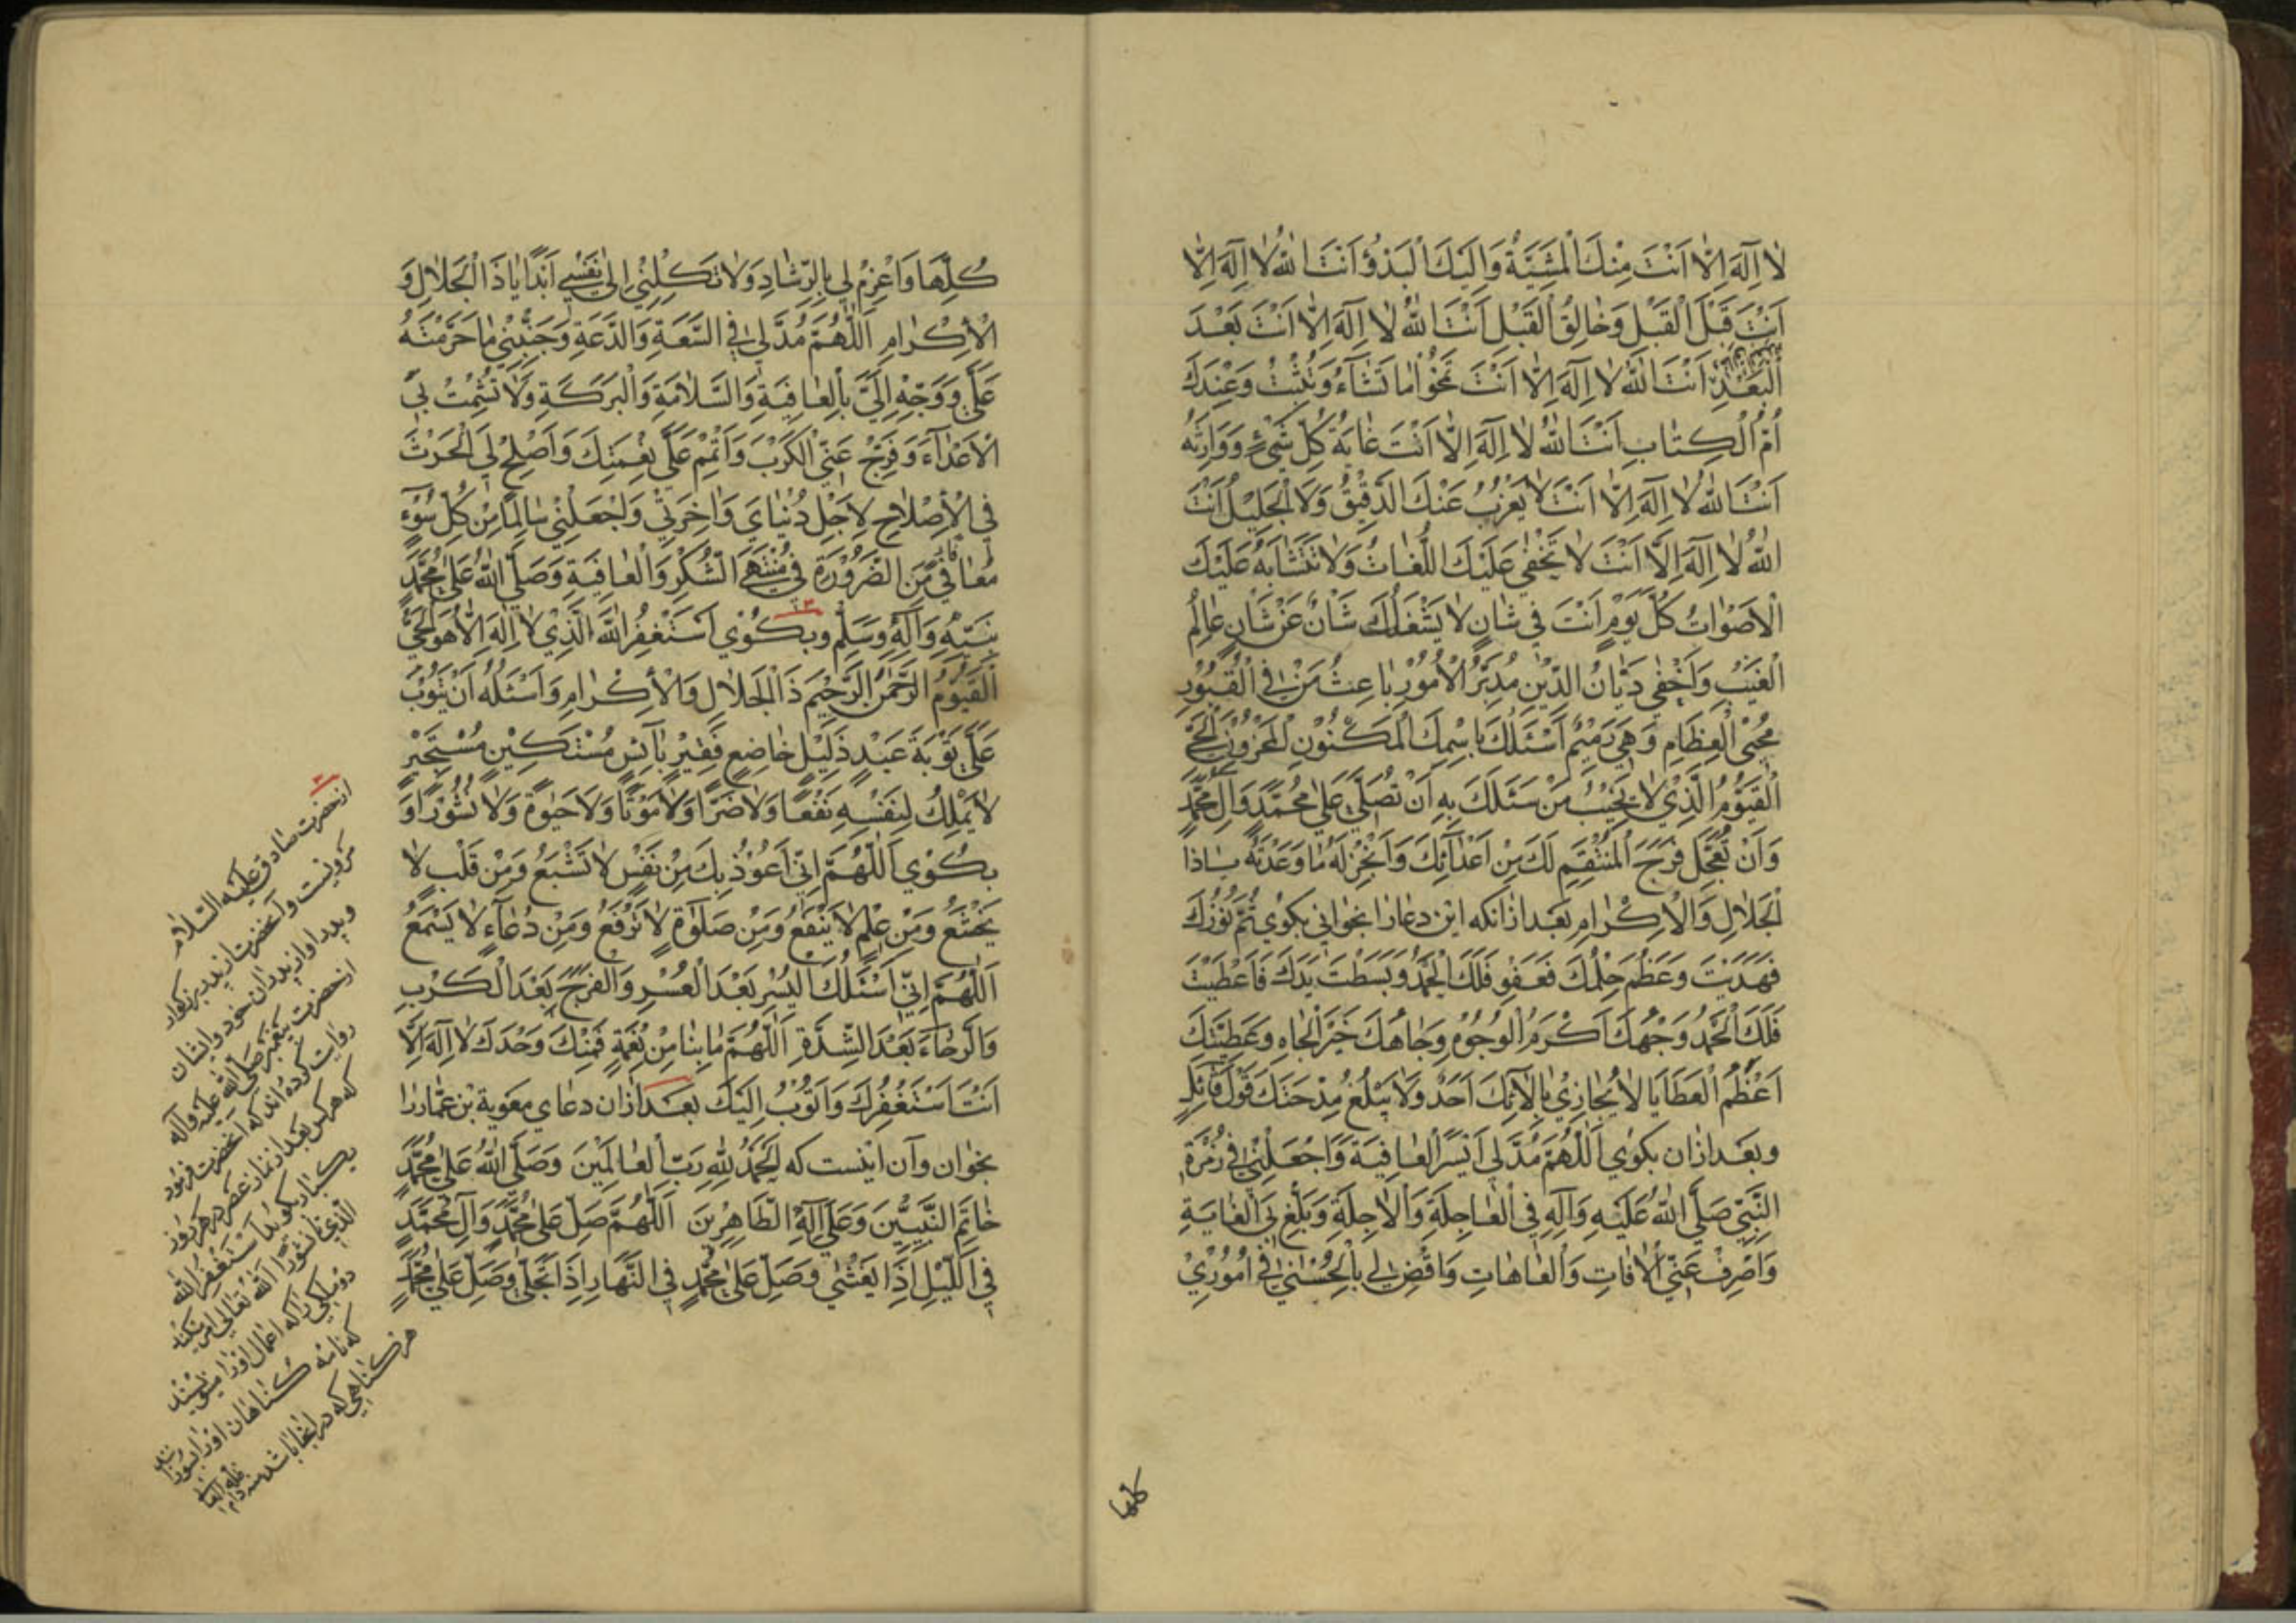 لا اِلٓهَ اِلّا اَنْتَ مِنْكَ الْمَشِيَّةُ وَاِلَيْكَ الْبَدْؤُ اَنْتَ اللهُ لا اِلٓهَ اِلّا
اَنْتَ قَبْلَ الْقَبْلِ وَخالِقُ الْقَبْلِ اَنْتَ اللهُ لا اِلٓهَ اِلّا اَنْتَ بَعْدَ
الْبَعْدِ اَنْتَ اللهُ لا اِلٓهَ اِلّا اَنْتَ تَمْحُوْا ما تَشآءُ وَتُثْبِتُ وَعِنْدَكَ
اُمُّ الْكِتابِ اَنْتَ اللهُ لا اِلٓهَ اِلّا اَنْتَ غايَةُ كُلِّ شَيْءٍ وَوارِثُهُ
اَنْتَ اللهُ لا اِلٓهَ اِلّا اَنْتَ لا يَعْزُبُ عَنْكَ الدَّقِيْقُ وَلَا الْجَلِيْلُ اَنْتَ
اللهُ لا اِلٓهَ اِلَّا اَنْتَ لا تَخْفٰى عَلَيْكَ اللُّغاتُ وَلا تَتَشابَهُ عَلَيْكَ
الْاَصْواتُ كُلَّ يَوْمٍ اَنْتَ في شانٍ لا يَشْغَلُكَ شَانٌ عَنْ شَانٍ عالِمُ
الْغَيْبِ وَاَخْفٰى دَيّانُ الدِّيْنِ مُدَبِّرُ الْاُمُوْرِ باعِثُ مَنْ فِي الْقُبُوْرِ
مُحْيِى الْعِظامِ وَهِيَ رَمِيْمٌ اَسْئَلُكَ بِاسْمِكَ الْمَكْنُوْنِ الْمَخْزُوْنِ الْحَيِّ
الْقَيُّوْمِ الَّذِيْ لا يَخِيْبُ مَنْ سَئَلَكَ بِهِ اَنْ تُصَلِّيَ عَلٰى مُحَمَّدٍ وَالِ مُحَمَّدٍ
وَاَنْ تُعَجِّلَ فَرَجَ الْمُنْتَقِمِ لَكَ مِنْ اَعْدآئِكَ وَاَنْجِزْ لَهُ ما وَعَدْتَهُ ياذَا
الْجَلالِ وَالْاِكْرامِ بَعد ازانكه اين دعارا بخوانى بكوى تَمَّ نُوْرُكَ
فَهَدَيْتَ وَعَظُمَ حِلْمُكَ فَعَفَوْتَ فَلَكَ الْحَمْدُ وَبَسَطْتَ يَدَكَ فَاَعْطَيْتَ
فَلَكَ الْحَمْدُ وَجْهُكَ اَكْرَمُ الْوُجُوْهِ وَجاهُكَ خَيْرُ الْجاهِ وَعَطِيَّتُكَ
اَعْظَمُ الْعَطايا لا يُجازِيْ بِآلآئِكَ اَحَدٌ وَلا يَبْلُغُ مِدْحَتَكَ قَوْلُ قآئِلٍ
وبعد ازان بكوى اَللّٰهُمَّ مُدَّ لِيْ اَيْسَرَ الْعافِيَةِ وَاجْعَلْنِيْ فِي زُمْرَةِ
النَّبِيِّ صَلَّى اللهُ عَلَيْهِ وَآلِهِ فِي الْعاجِلَةِ وَالْاٰجِلَةِ وَبَلِّغْ بِيَ الْغايَةَ
وَاصْرِفْ عَنِّي الْاٰفاتِ وَالْعاهاتِ وَاقْضِ لي بِالْحُسْنٰى في اُمُوْرِيْ
كلها
كُلِّها وَاعْزِمْ لي بِالرَّشادِ وَلا تَكِلْنِيْ اِلٰى نَفْسِي اَبَدًا ياذَا الْجَلالِ وَ
الْاِكْرامِ اَللّٰهُمَّ مُدَّ لي فِي السَّعَةِ وَالدَّعَةِ وَجَنِّبْنِيْ ما حَرَّمْتَهُ
عَلَيَّ وَوَجِّهْ اِلَيَّ بِالْعافِيَةِ وَالسَّلامَةِ وَالْبَرَكَةِ وَلا تُشْمِتْ بِيَ
الْاَعْدآءَ وَفَرِّجْ عَنِّي الْكَرْبَ وَاَتْمِمْ عَلَيَّ نِعْمَتَكَ وَاَصْلِحْ لِيَ الْحَرْثَ
فِي الْاِصْلاحِ لِاَجْلِ دُنْيايَ وَاٰخِرَتِيْ وَاجْعَلْنِيْ سالِمًا مِنْ كُلِّ سُوْٓءٍ
مُعافًى مِنَ الضَّرُوْرَةِ فِي مُنْتَهَى الشُّكْرِ وَالْعافِيَةِ وَصَلَّى اللهُ عَلٰى مُحَمَّدٍ
نَبِيِّهِ وَآلِهِ وَسَلَّمَ وبكوى اَسْتَغْفِرُ اللهَ الَّذِيْ لا اِلٰهَ اِلّا هُوَ الْحَيُّ
الْقَيُّوْمُ الرَّحْمٰنُ الرَّحِيْمُ ذَا الْجَلالِ وَالْاِكْرامِ وَاَسْئَلُهُ اَنْ يَتُوْبَ
عَلَيَّ تَوْبَةَ عَبْدٍ ذَلِيْلٍ خاضِعٍ فَقِيْرٍ بآئِسٍ مُسْتَكِيْنٍ مُسْتَجِيْرٍ
لا يَمْلِكُ لِنَفْسِهِ نَفْعًا وَلا ضَرًّا وَلا مَوْتًا وَلا حَيٰوةً وَلا نُشُوْرًا وَ
بكوى اَللّٰهُمَّ اِنّي اَعُوْذُ بِكَ مِنْ نَفْسٍ لا تَشْبَعُ وَمِنْ قَلْبٍ لا
يَخْشَعُ وَمِنْ عِلْمٍ لا يَنْفَعُ وَمِنْ صَلٰوةٍ لا تُرْفَعُ وَمِنْ دُعآءٍ لا يُسْمَعُ
اَللّٰهُمَّ اِنّي اَسْئَلُكَ الْيُسْرَ بَعْدَ الْعُسْرِ وَالْفَرَجَ بَعْدَ الْكَرْبِ
وَالرَّخآءَ بَعْدَ الشِّدَّةِ اَللّٰهُمَّ ما بِنا مِنْ نِعْمَةٍ فَمِنْكَ وَحْدَكَ لا اِلٓهَ اِلَّا
اَنْتَ اَسْتَغْفِرُكَ وَاَتُوْبُ اِلَيْكَ بعد ازان دعاى معوية بن عمار را
بخوان وآن اينست كه اَلْحَمْدُ لِلّهِ رَبِّ الْعالَمِيْنَ وَصَلَّى اللهُ عَلٰى مُحَمَّدٍ
خاتَمِ النَّبِيّيْنَ وَعَلٰى آلِهِ الطَّاهِرِيْنَ اَللّٰهُمَّ صَلِّ عَلٰى مُحَمَّدٍ وَآلِ مُحَمَّدٍ
فِي اللَّيْلِ اِذَا يَغْشٰى وَصَلِّ عَلٰى مُحَمَّدٍ فِي النَّهارِ اِذَا تَجَلّٰى وَصَلِّ عَلٰى مُحَمَّدٍ
ازحضرت صادق عليه السلام
مرويست وآنحضرت از پدر بزركوار
وپدر او از پدران خود وايشان
ازحضرت پيغمبر صلى الله عليه وآله
روايت كرده اند كه آنحضرت فرمود
كه هركس بعد از نماز عصر در هر روز
يكبار بكويد استغفر الله
الذى تا نشورا الله تعالى امر ميكند
دو ملكى را كه اعمال او را مينويسند
كه نامه كناهان او را
هر كناهى كه در انجا باشد